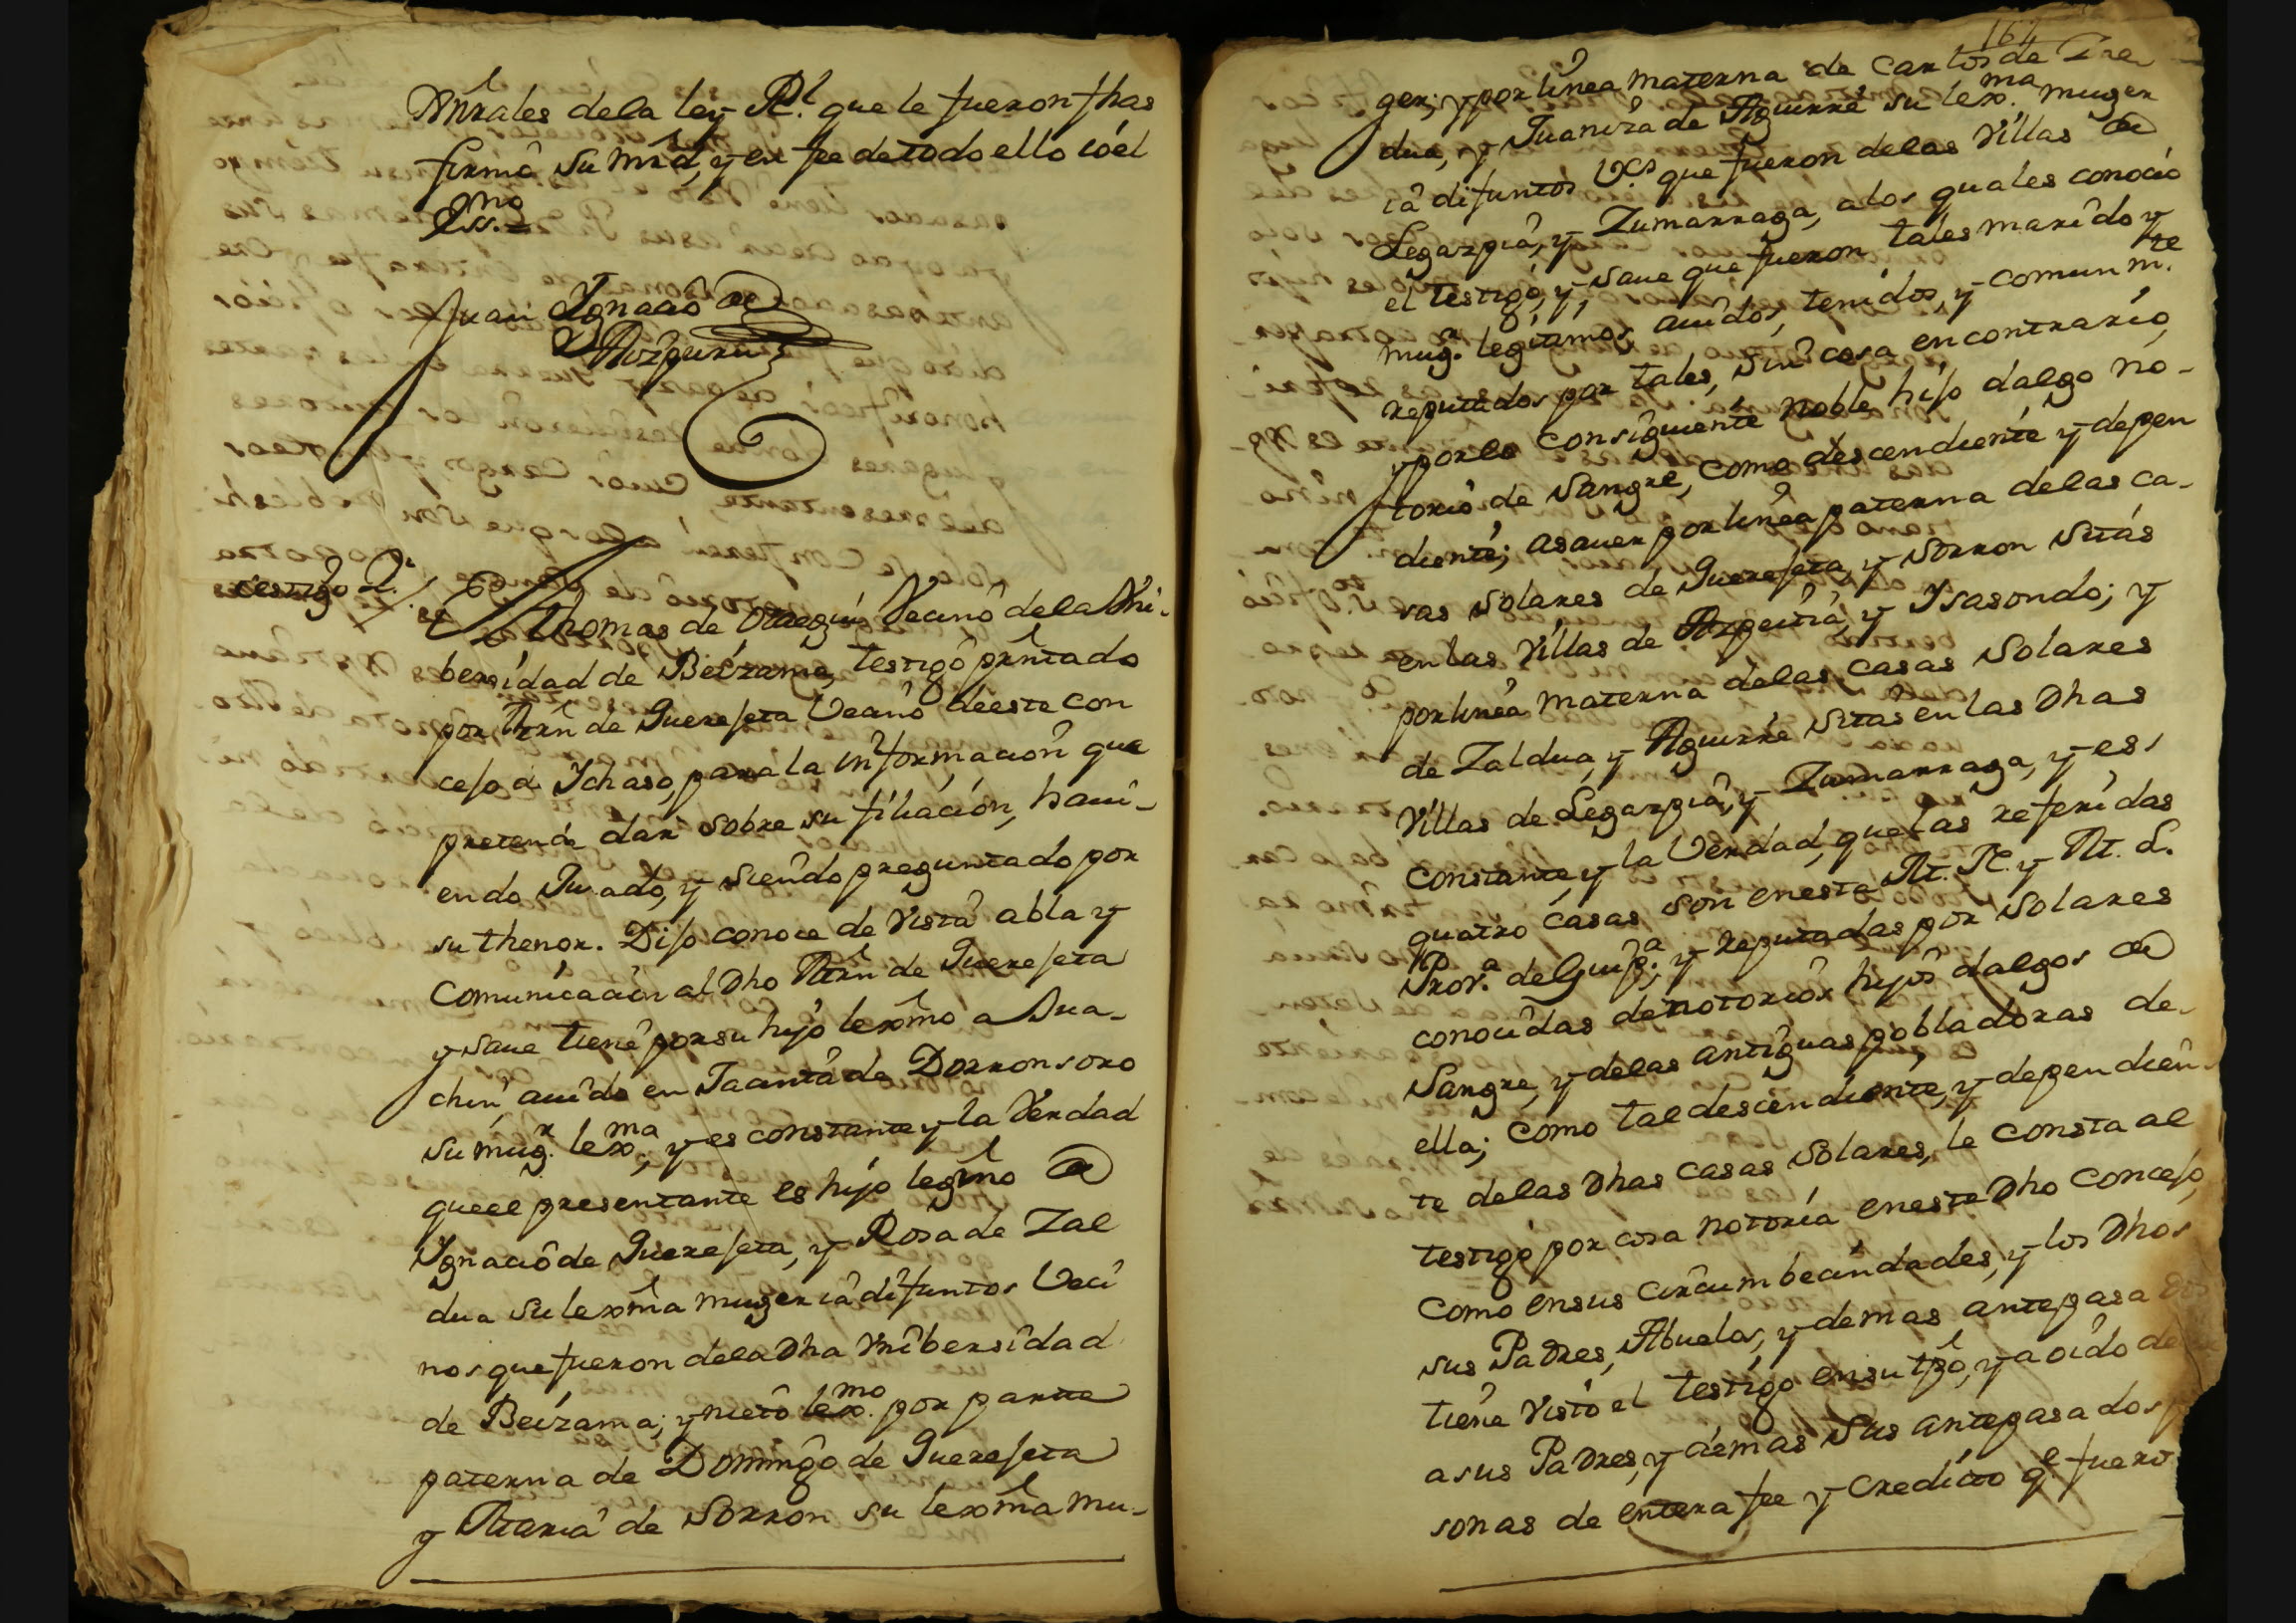 Gnrâles dela ley Rl. que le fueron fhas
firmó su mrd, y en fee de todo ello ió el
Essno.
Juan Ignacio de
Aozpuru
testigo 2º.
Thomas de Otaegui Vecino dela Vni-
bersidad de Beizama, testigo prêntado
por Mrn̂ de Guereseta Vecino de este con
cejo de Ychaso, para la información que
pretende dar sobre su filiación, haui-
endo Jurado, y siendo preguntado por
su thenor. Dijo conoce de Vista abla y
Comunicación al Dho Mrn̂ de Guereseta
y saue tiene por su hijo lexm̂o a Jua-
chin, auido en Jacinta de Dorronsoro
su mugr. lexma, y es constante y la Verdad
que el presentante es hijo legm̂o de
Ygnacio de Guereseta, y Rosa de Zal
dua su lexm̂a muger ia difuntos Veci
nos que fueron dela Dha Vnibersidad
de Beizama; y nieto lexmo. por parte
paterna de Domingo de Guereseta
y Maria de Sorron su lexm̂a mu-
164
ger; y por linea materna de Carlos de Zal
dua, y Juaniza de Aguirre su lexma. muger
ia difuntos Vecs. que fueron delas Villas de
Legazpia, y Zumarraga, a los quales conocio
el testigo, y saue que fueron tales marido y
mugr. legitimos auidos, tenidos, y comunmte
reputados por tales, sin cosa en contrario,
y por lo consiguiente noble hijo dalgo no-
torio de sangre, como descendiente y depen
diente; asauer por linea paterna delas ca-
sas solares de Guereseta, y Sorron sitas
en las Villas de Azpeitia, y Ysasondo; y
por linea materna delas casas solares
de Zaldua, y Aguirre sitas en las Dhas
Villas de Legazpia, y Zumarraga, y es
constante y la Verdad, que las referidas
quatro casas son en esta M. N. y M. L.
Prova. de Guipa. y reputadas por solares
conocidas de notorios hijos dalgos de
Sangre, y delas antiguas pobladoras de
ella; como tal descendiente, y dependien
te delas Dhas casas solares, le consta al
testigo por cosa notoria en este Dho Concejo,
como en sus circumbecindades, y los Dhos
sus Padres, Abuelos, y demas antepasados
tiene Visto el testigo en su tp̂o, y a oido de
a sus Padres, y demas sus antepasados
sonas de entera fee y credito qe. fueron